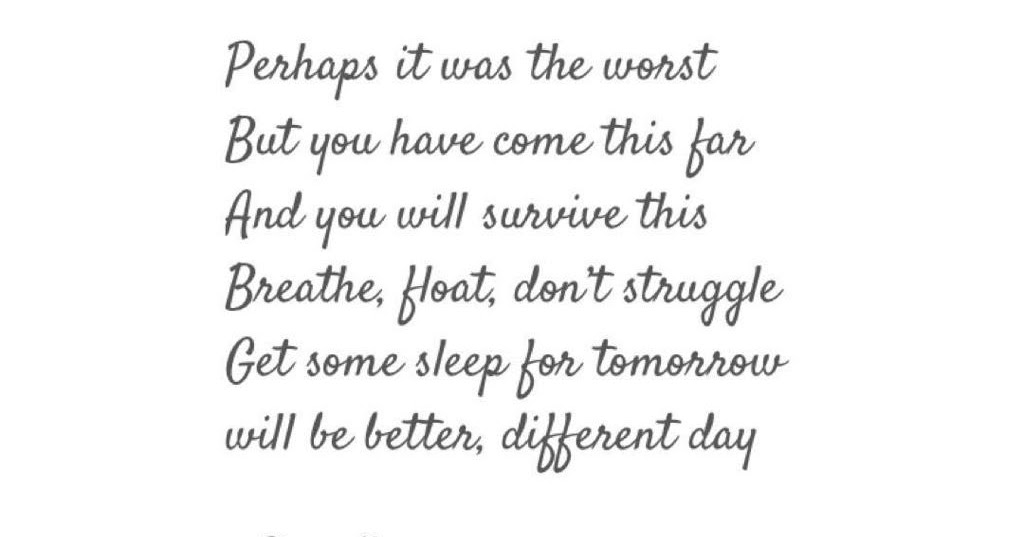 Perhaps it was the worst
But you have come this far
And you will survive this
Breathe, float, don't struggle
Get some sleep for tomorrow
will be better, different day